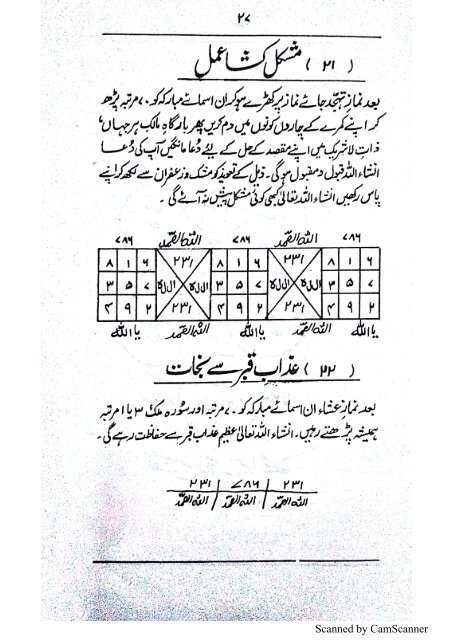 ۲۷
(۲۱) مشکل کشا عمل
بعد نماز تہجد جائے نماز پر کھڑے ہو کر ان اسمائے مبارکہ کو ۷۰ مرتبہ پڑھ
کر اپنے کمرے کے چاروں کونوں میں دم کریں پھر بارگاہِ مالک ہر جہاں،
ذات لاشریک میں اپنے مقصد کے حل کے لیئے دُعا مانگیں آپ کی دُعا
انشاء اللہ قبول و مقبول ہوگی۔ ذیل کے تعویذ کو مشک و زعفران سے لکھ کر اپنے
پاس رکھیں انشاء اللہ تعالیٰ کبھی کوئی مشکل پیش نہ آئے گی۔
۷۸۶ اللہ الصمد ۷۸۶ اللہ الصمد ۷۸۶
۸ ۱ ۶ ۲۳۱ ۸ ۱ ۶ ۲۳۱ ۸ ۱ ۶
۳ ۵ ۷ ال لہ ال لہ ۳ ۵ ۷ ال لہ ال لہ ۳ ۵ ۷
۴ ۹ ۲ ۲۳۱ ۴ ۹ ۲ ۲۳۱ ۴ ۹ ۲
یا اللہ اللہ الصمد یا اللہ اللہ الصمد یا اللہ
(۲۲) عذاب قبر سے نجات
بعد نماز عشاء ان اسمائے مبارکہ کو ۷۰ مرتبہ اور سورہ ملک ۳ یا ۱ مرتبہ
ہمیشہ پڑھتے رہیں۔ انشاء اللہ تعالیٰ عظیم عذاب قبر سے حفاظت رہے گی۔
۲۳۱ ۷۸۶ ۲۳۱
اللہ الصمد اللہ الصمد اللہ الصمد
Scanned by CamScanner